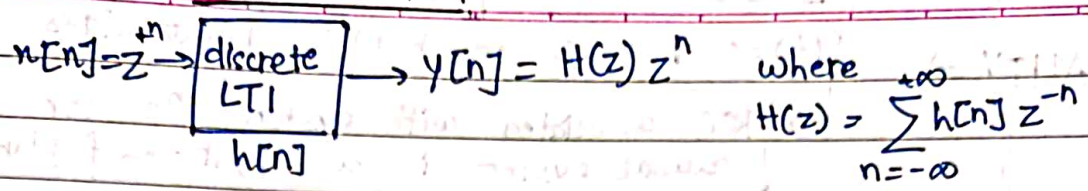 x[n]=z^{+n} → discrete LTI → y[n] = H(z) z^n where
h[n]
H(z) = \sum_{n=-∞}^{+∞} h[n] z^{-n}